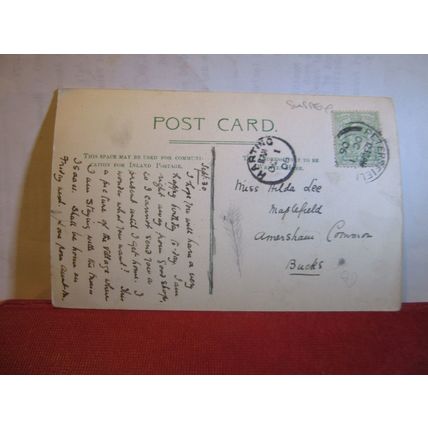 SURREY
POST CARD.
THIS SPACE MAY BE USED FOR COMMUNI-
CATION FOR INLAND POSTAGE.
TO BE
HERE.
HARTING
OC 1
05
PETERSFIELD
Miss Hilda Lee
Maplefield
Amersham Common
Bucks
Sept. 30
I hope you will have a very
happy birthday to day. I am
right away from good shops,
so I cannot send you a
present until I get home. I
wonder what you want? This
is a picture of the village where
I am staying with the
I Shall be home on
Friday next. Love from Aunt